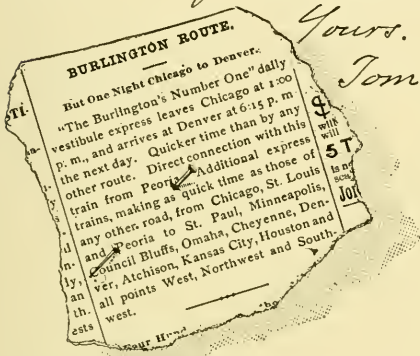 Yours.
Tom
BURLINGTON ROUTE.
But One Night Chicago to Denver.
"The Burlington's Number One" daily
vestibule express leaves Chicago at 1:00
p. m., and arrives at Denver at 6:15 p. m.
the next day. Quicker time than by any
other route. Direct connection with this
train from Peoria. Additional express
trains, making as quick time as those of
any other road, from Chicago, St. Louis
and Peoria to St. Paul, Minneapolis,
Council Bluffs, Omaha, Cheyenne, Den-
ver, Atchison, Kansas City, Houston and
all points West, Northwest and South-
west.
an
th.
ests
$
will
5 T